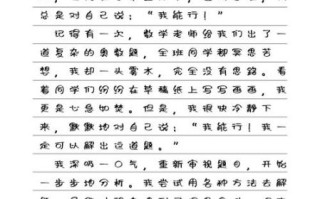 总是对自己说：“我能行！”
记得有一次，数学老师给我们出了一
道复杂的奥数题，全班同学都冥思苦
想，我却一头雾水，完全没有思路。看
着同学们纷纷在草稿纸上写写画画，我
更是七急如焚。但是，我很快冷静下
来，默默地对自己说：“我能行！我一
定可以解出这道题。”
我深吸一口气，重新审视题目，开始
一步步地分析。我尝试用各种方法去解